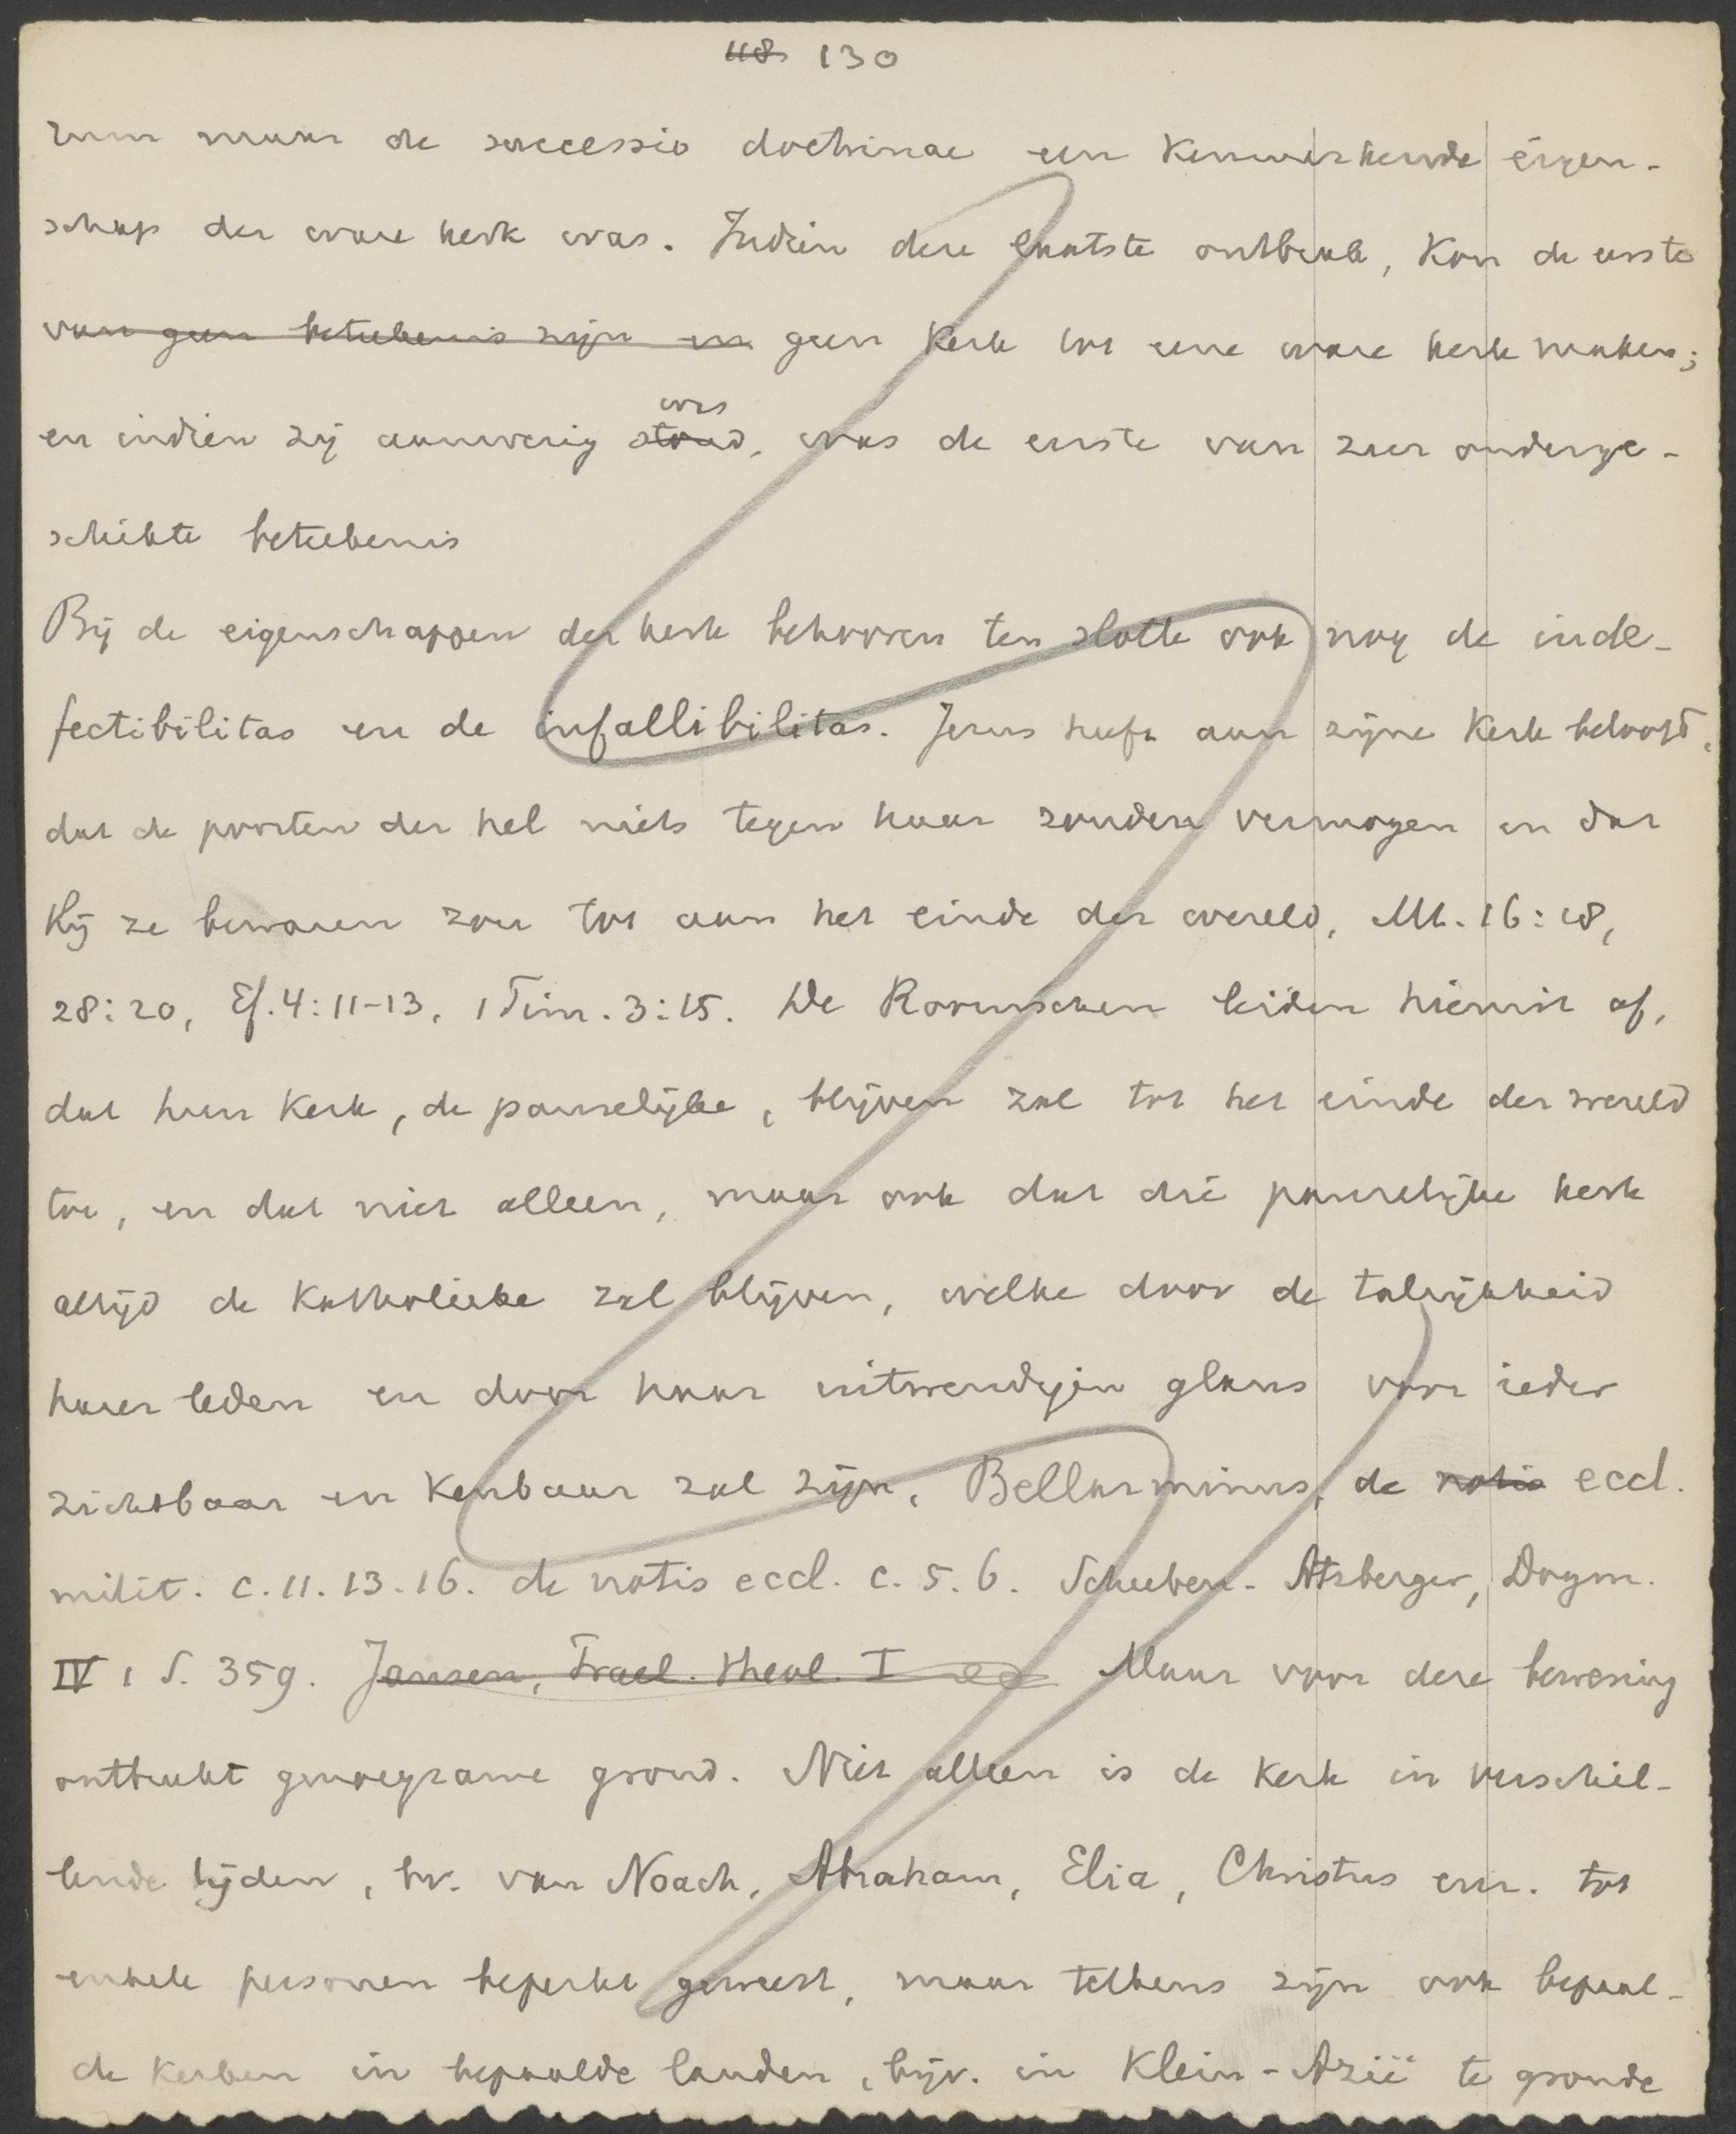 118 130
zum maar de successio doctrinae een kenmerkende eigen-
schap der ware kerk was. Indien deze laatste ontbrak, kon de eerste
van geen beteekenis zijn en geen kerk tot eene ware kerk maken;
was
en indien zij aanwezig stond, was de eerste van zeer onderge-
schikte beteekenis
Bij de eigenschappen der kerk behooren ten slotte ook nog de inde-
fectibilitas en de infallibilitas. Jezus heeft aan zijne kerk beloofd,
dat de poorten der hel niets tegen haar zouden vermogen en dat
Hij ze bewaren zou tot aan het einde der wereld, Mt. 16:18,
28:20, Ef. 4:11-13, 1 Tim. 3:15. De Roomschen leiden hieruit af,
dat hun kerk, de pauselijke, blijven zal tot het einde der wereld
toe, en dat niet alleen, maar ook dat die pauselijke kerk
altijd de Katholieke zal blijven, welke door de talrijkheid
harer leden en door haar uitwendigen glans voor ieder
zichtbaar en kenbaar zal zijn, Bellarminus, de notis eccl.
milit. c. 11. 13. 16. de notis eccl. c. 5. 6. Scheeben-Atzberger, Dogm.
IV 1 S. 359. Jansen, Prael. theol. I Maar voor deze bewering
ontbreekt genoegzame grond. Niet alleen is de kerk in verschil-
lende tijden, bv. van Noach, Abraham, Elia, Christus enz. tot
enkele personen beperkt geweest, maar telkens zijn ook bepaal-
de kerken in bepaalde landen, bijv. in Klein-Azië te gronde